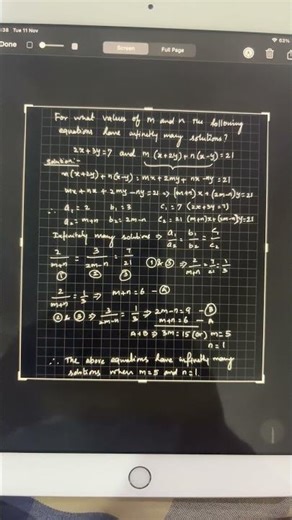 :38 Tue 11 Nov
63%
Done
Screen
Full Page
For what values of m and n the following
equations have infinitely many solutions?
2x+3y=7 and m(x+2y)+n(x-y)=21
Solution:-
m(x+2y)+n(x-y)=21 ⇒ mx+2my+nx-ny=21
mx+nx+2my-ny=21 ⇒ (m+n)x+(2m-n)y=21
∴ a₁=2 b₁=3 c₁=7 (2x+3y=7)
a₂=m+n b₂=2m-n c₂=21 (m+n)x+(2m-n)y=21
Infinitely many solutions ⇒ a₁/a₂ = b₁/b₂ = c₁/c₂
2/(m+n) = 3/(2m-n) = 7/21 ① & ③ ⇒ 2/(m+n) = 7/21 = 1/3
① ② ③
2/(m+n) = 1/3 ⇒ m+n=6 - Ⓐ
② & ③ ⇒ 3/(2m-n) = 1/3 ⇒ 2m-n=9 - Ⓑ
m+n=6 - A
A+B ⇒ 3m=15 (or) m=5
n=1
∴ The above equations have infinitely many
solutions when m=5 and n=1.